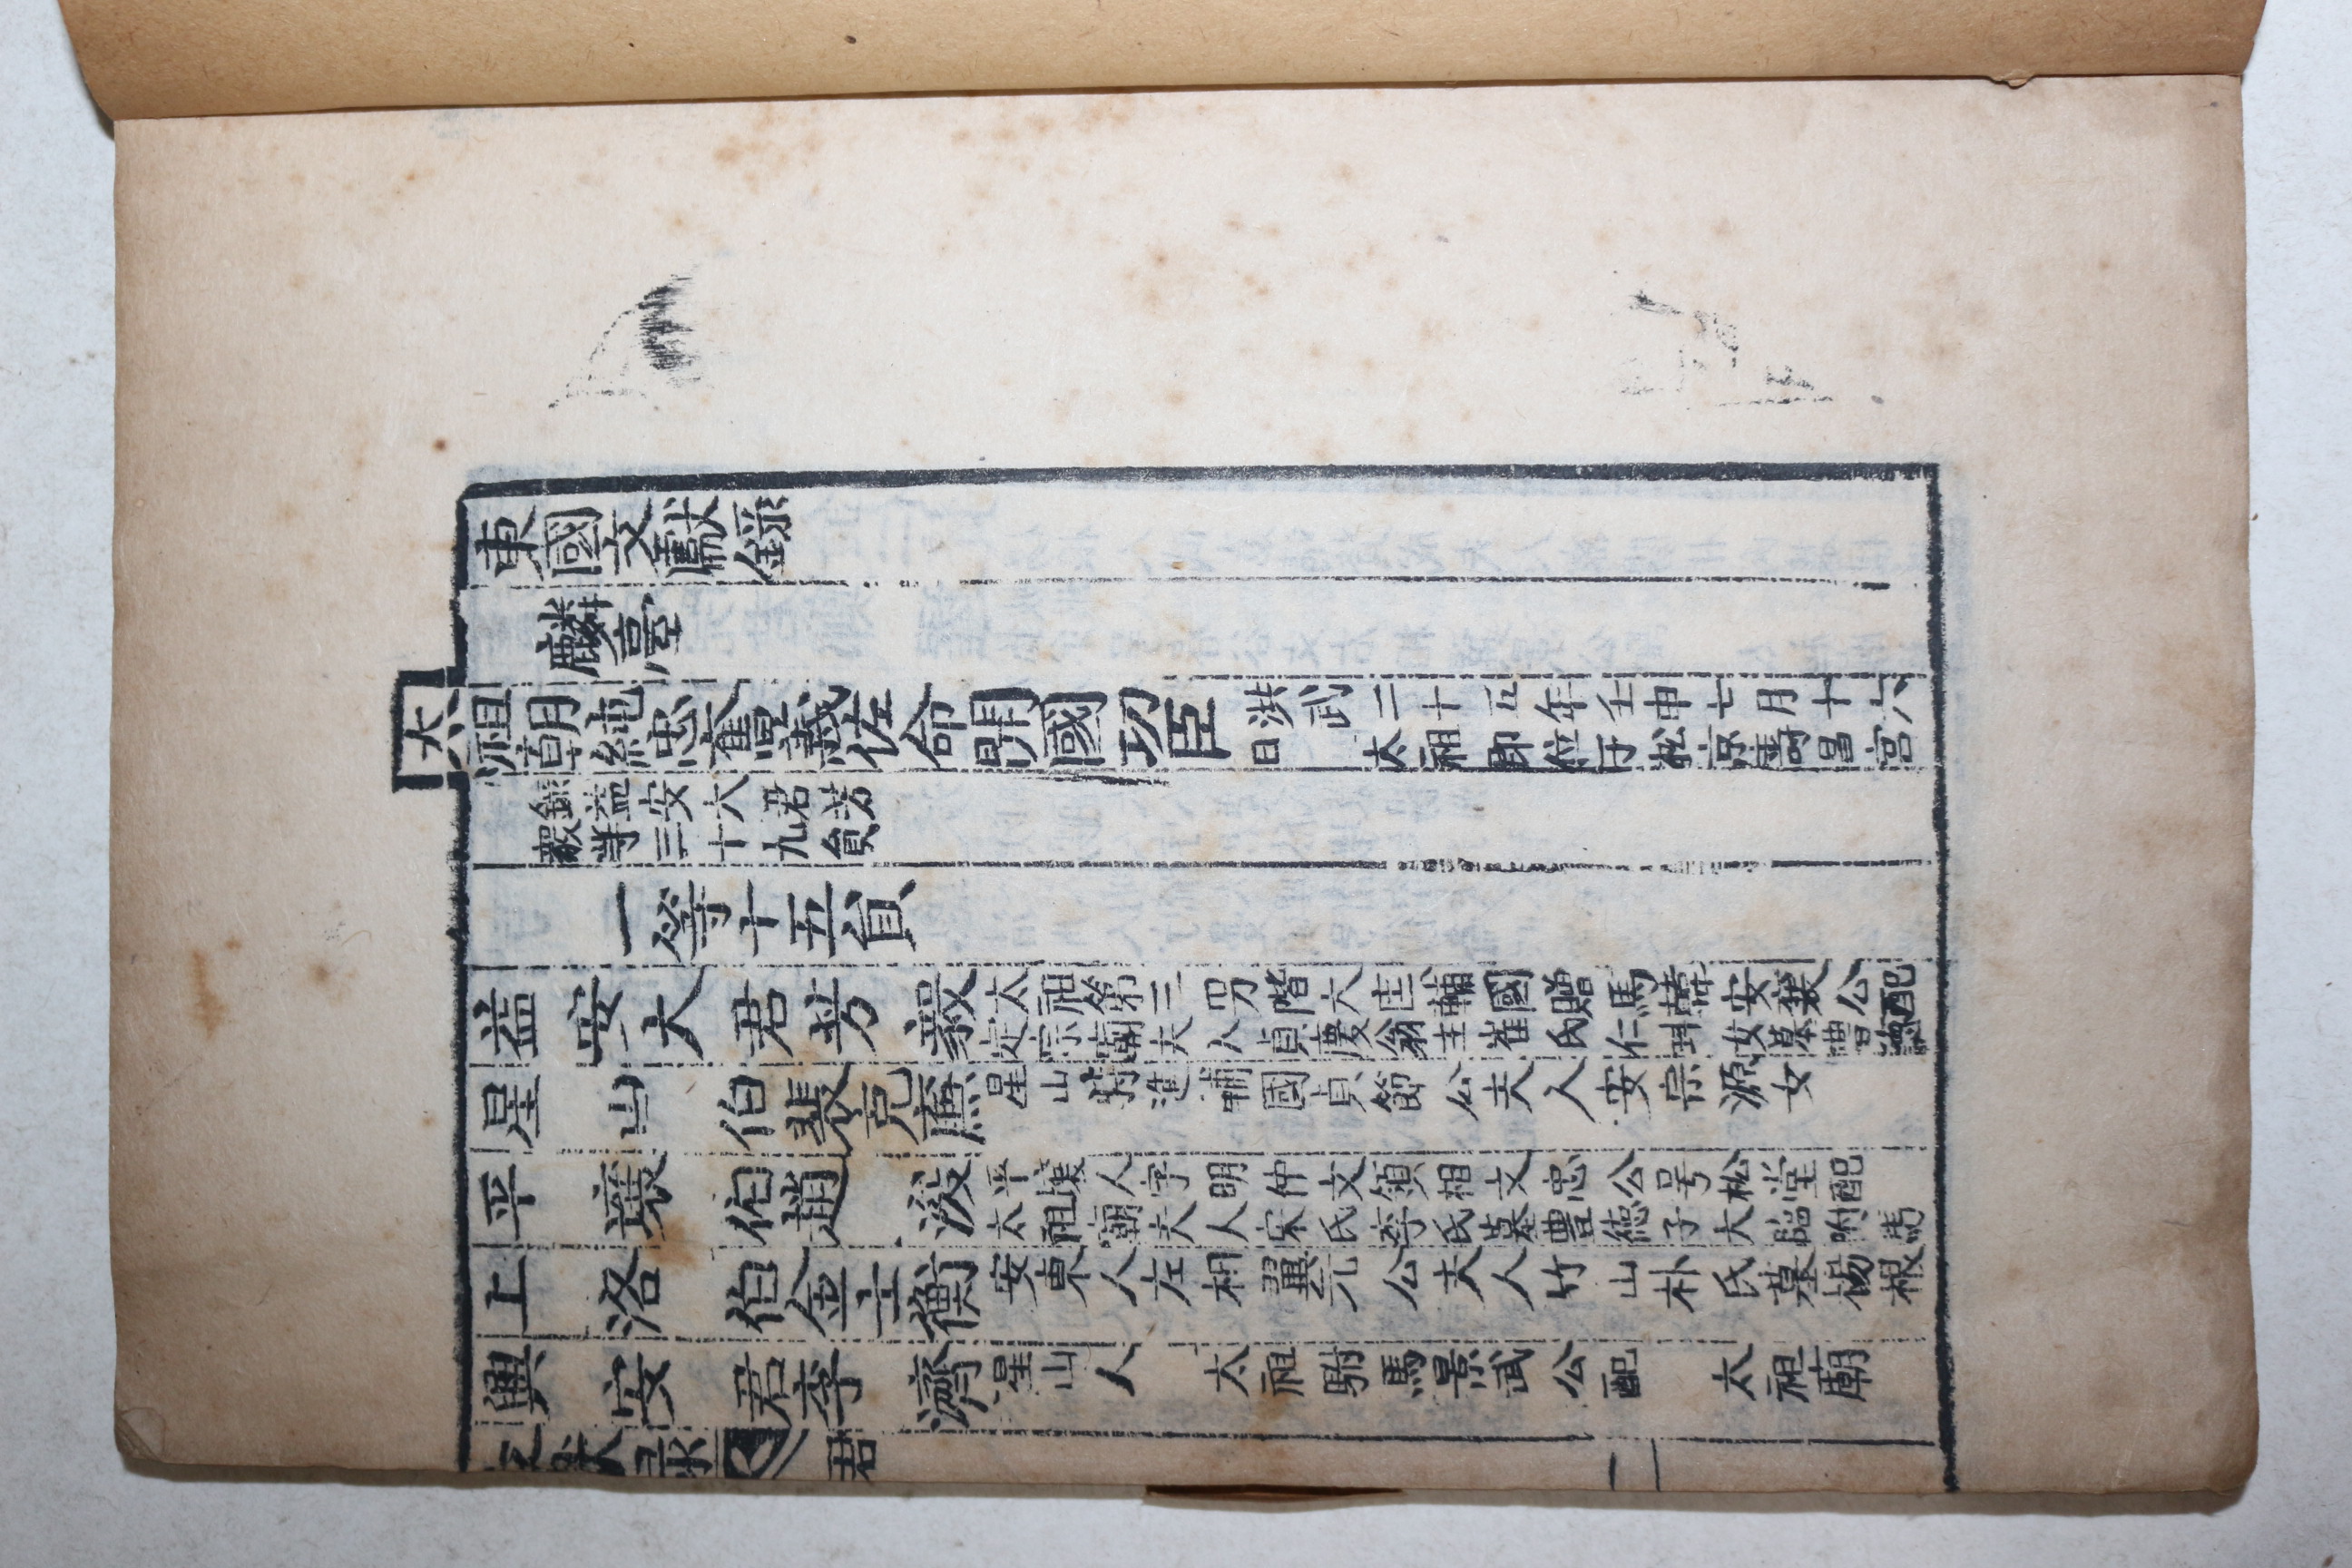 東國文獻錄
麟臺
太祖朝純忠奮義佐命開國功臣
洪武二十五年壬申七月十六
日 太祖即位于松京壽昌宮
錄益安大君芳
毅等三十九員
一等十五員
益安大君芳毅
太祖第三男階大匡輔國贈馬韓安襄公配
定宗廟夫人貞慶翁主崔氏仁㺶女墓豊德
星山伯裴克廉
星山特進輔國貞節公夫人安宗源女
平壤伯趙浚
平壤人字明仲文領相文忠公号松堂配
太祖廟夫人宋氏李氏墓豊德子大臨附馬
上洛伯金士衡
安東人左相翼元公夫人竹山朴氏墓楊根
興安君李濟
星山人 太祖駙馬景武公配 太祖廟
文獻录
君
一